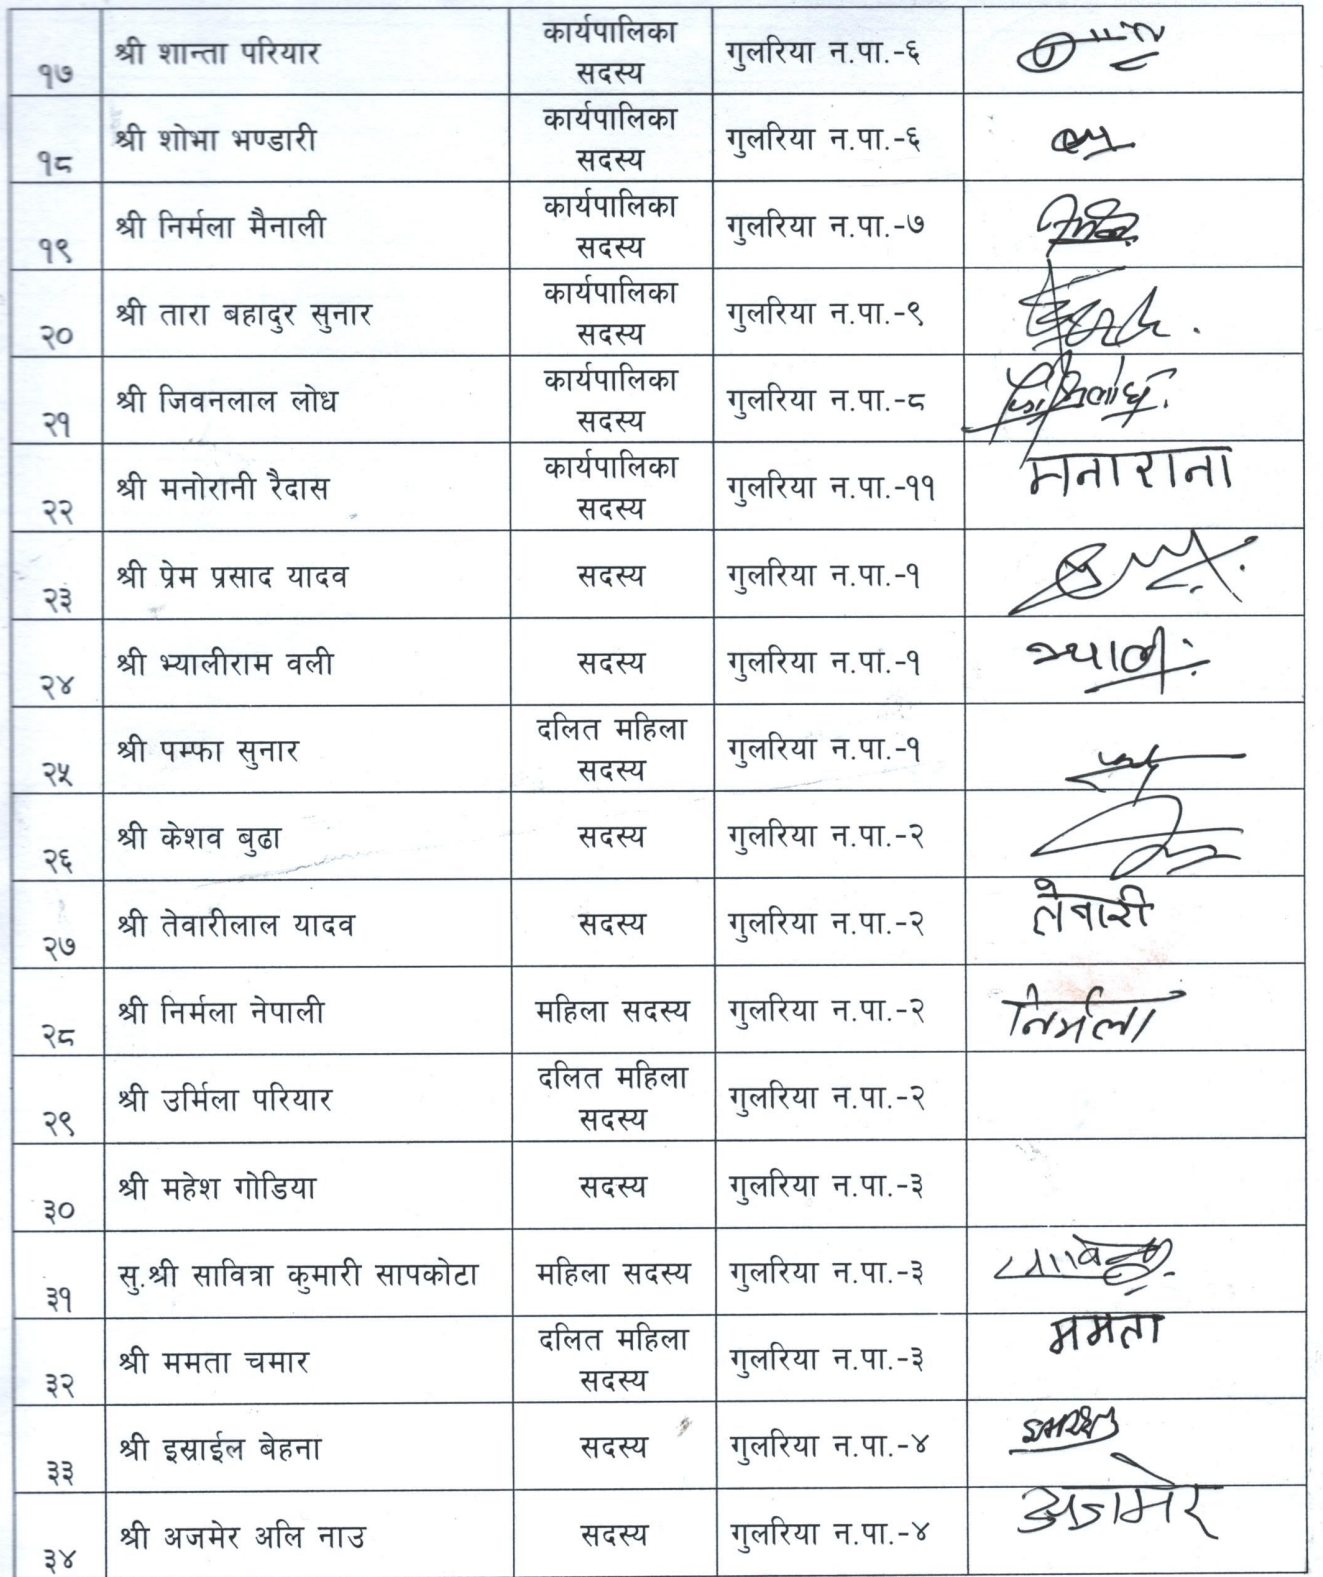 १७ श्री शान्ता परियार कार्यपालिका सदस्य गुलरिया न.पा.-६
१८ श्री शोभा भण्डारी कार्यपालिका सदस्य गुलरिया न.पा.-६
१९ श्री निर्मला मैनाली कार्यपालिका सदस्य गुलरिया न.पा.-७
२० श्री तारा बहादुर सुनार कार्यपालिका सदस्य गुलरिया न.पा.-९
२१ श्री जिवनलाल लोध कार्यपालिका सदस्य गुलरिया न.पा.-८
२२ श्री मनोरानी रैदास कार्यपालिका सदस्य गुलरिया न.पा.-११ मनाराना
२३ श्री प्रेम प्रसाद यादव सदस्य गुलरिया न.पा.-१
२४ श्री भ्यालीराम वली सदस्य गुलरिया न.पा.-१ भ्याली
२५ श्री पम्फा सुनार दलित महिला सदस्य गुलरिया न.पा.-१
२६ श्री केशव बुढा सदस्य गुलरिया न.पा.-२
२७ श्री तेवारीलाल यादव सदस्य गुलरिया न.पा.-२ तेवारी
२८ श्री निर्मला नेपाली महिला सदस्य गुलरिया न.पा.-२ निर्मला
२९ श्री उर्मिला परियार दलित महिला सदस्य गुलरिया न.पा.-२
३० श्री महेश गोडिया सदस्य गुलरिया न.पा.-३
३१ सु.श्री सावित्रा कुमारी सापकोटा महिला सदस्य गुलरिया न.पा.-३
३२ श्री ममता चमार दलित महिला सदस्य गुलरिया न.पा.-३ ममता
३३ श्री इस्राईल बेहना सदस्य गुलरिया न.पा.-४
३४ श्री अजमेर अलि नाउ सदस्य गुलरिया न.पा.-४ अजमेर